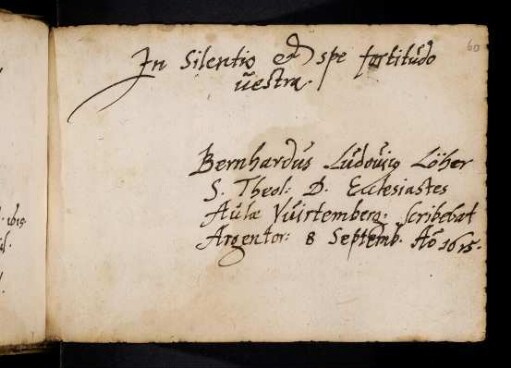 60
In Silentio et spe fortitudo
vestra.
Bernhardus Ludovicus Löher
S. Theol: D. Ecclesiastes
Aulæ Vuirtemberg. scribebat
Argentor: 8 Septemb. Aō 1615.
1615